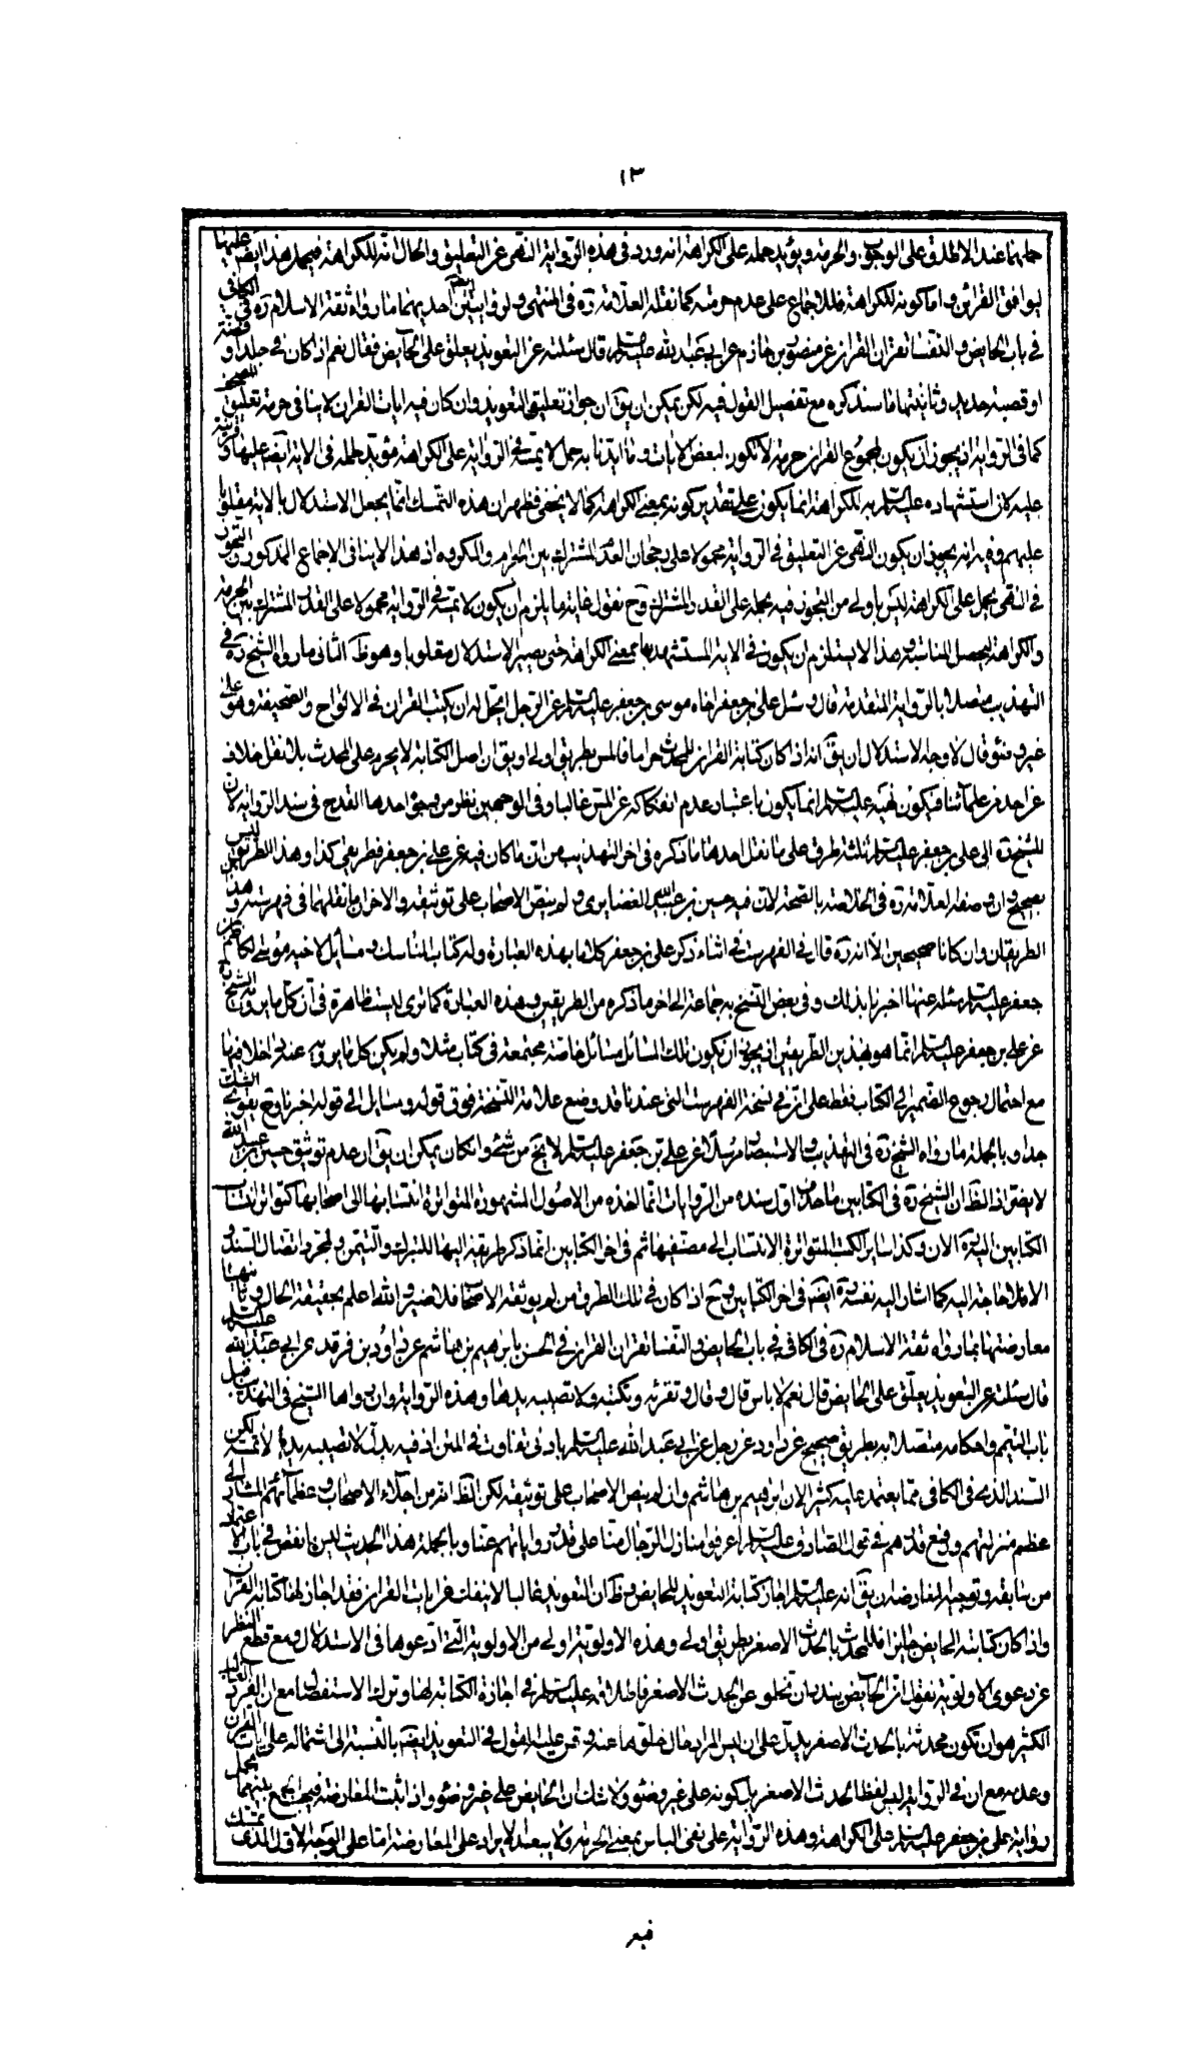 ١٣
حملهما عند الاطلاق على الوجوب والحرمة ويؤيد حمله على الكراهة انه ورد في هذه الرواية النهى عن التعليق والحال انه للكراهة فيحمل هذا ايضا عليها
ليوافق القرائن واما كونه للكراهة فللاجماع على عدم حرمته كما نقله العلامة ره في المنتهى ولروايتين احديهما ما رواه ثقة الاسلام ره في الكافي
في باب الحايض والنفساء تقرءان القران عن منصور بن حازم عن ابي عبد الله عليه السلم قال سئلته عن التعويذ يعلق على الحايض فقال نعم اذا كان في جلد او فضة
او قصبة حديد وثانيتهما ما سنذكره مع تفصيل القول فيه لكن يمكن ان يقال ان جواز تعليق التعويذ وان كان فيه ايات القران لا ينافي حرمة تعليق المصحف
كما في الرواية اذ يجوز ان يكون لمجموع القران حرمة لا تكون لبعض الايات وما ايدنا به حمل لا تمسه في الرواية على الكراهة مؤيد لحمله في الاية ايضا عليها وقرينة
عليه لان استشهاده عليه السلم به للكراهة انما يكون على تقدير كونه بمعنى الكراهة كما لا يخفى فظهر ان هذه التمسك انما يجعل الاستدلال بالاية مقلوبا
عليهم وفيه انه يجوز ان يكون النهى عن التعليق في الرواية محمولا على رجحان القدر المشترك بين الحرام والمكروه اذ هذا لا ينافي الاجماع المذكور والتجوز
في النهى بحمل على الكراهة ليس باولى من التجوز فيه بحمله على القدر المشترك وح نقول غاية ما يلزم ان يكون لا تمسه في الرواية محمولا على القدر المشترك بين الحرمة
والكراهة ليحصل المناسبة وهذا لا يستلزم ان يكون في الاية المستشهد بها بمعنى الكراهة حتى يصير الاستدلال مقلوبا وهو ظ الثاني ما رواه الشيخ ره في
التهذيب متصلا بالرواية المتقدمة قال وسئل على بن جعفر اخاه موسى بن جعفر عليه السلم عن الرجل ايحل له ان يكتب القران في الالواح والصحيفة وهو على
غير وضوء قال لا وجه الاستدلال ان يق انه اذا كان كتابة القران للمحدث حراما فالمس بطريق اولى او يق ان اصل الكتابة لا يحرم على المحدث بلا نقل خلاف
عن احد من علمائنا فيكون نهيه عليه السلم انما يكون باعتبار عدم انفكاكه عن المس غالبا وفي الوجهين نظر من وجوه احدها القدح في سند الرواية لان
للشيخ ره الى على بن جعفر عليه السلم ثلثة طرق على ما نقل احدها ما ذكره في اخر التهذيب من ان ما كان فيه عن على بن جعفر فطريقي كذا وهذا الطريق ليس
بصحيح وان وصفه العلامة ره في الخلاصة بالصحة لان فيه حسين بن عبيد الله الغضايرى ولم ينص الاصحاب على توثيقه والاخران نقلهما في فهرسته وهذان
الطريقان وان كانا صحيحين الا انه ره قال في الفهرست في اثناء ذكر على بن جعفر كلاما بهذه العبارة وله كتاب المناسك ومسائل لاخيه موسى الكاظم بن
جعفر عليه السلم سئله عنها اخبرنا بذلك وفي بعض النسخ به جماعة الى اخر ما ذكره من الطريقين وهذه العبارة كما ترى ليست ظاهرة في ان كل ما يرويه الشيخ ره
عن على بن جعفر عليه السلم انما هو بهذين الطريقين اذ يجوز ان يكون تلك المسائل مسائل خاصة مجتمعة في كتاب مثلا ولم يكن كل ما يرويه عنه داخلا فيها
مع احتمال رجوع الضمير الى الكتاب فقط على ان في نسخة الفهرست التي عندنا قد وضع علامة النسخة فوق قوله ومسايل الى قوله اخبرنا وح يقوى الشك
جدا وبالجملة ما رواه الشيخ ره في التهذيب والاستبصار مرسلا عن على بن جعفر عليه السلم لا يخ من شيء وان كان يمكن ان يق ان عدم توثيق حسين بن عبيد الله
لا يضر اذ الظ ان الشيخ ره في الكتابين ما حذف اول سنده من الروايات انما اخذه من الاصول المشهورة المتواترة انتسابها الى اصحابها كتواتر انتساب
الكتابين اليه ره الان وكذا ساير الكتب المتواترة الانتساب الى مصنفيها ثم في اخر الكتابين انما ذكر طريقه اليها للتبرك والتيمن ولمجرد اتصال السند و
الا فلا حاجة اليه كما اشار اليه نفسه ره ايض في اخر الكتابين وح اذا كان في تلك الطرق من لم يوثقه الاصحاب فلا ضير والله اعلم بحقيقة الحال وثانيها
معارضتها بما رواه ثقة الاسلام ره في الكافي في باب الحايض والنفساء تقرءان القران في الحسن بابراهيم بن هاشم عن داود بن فرقد عن ابي عبد الله عليه السلم
قال سئلته عن التعويذ يعلق على الحايض قال نعم لا باس قال وقال وتقرئه وتكتبه ولا تصيبه يدها وهذه الرواية وان رواها الشيخ في التهذيب في
باب التيمم واحكامه متصلا به بطريق صحيح عن داود عن رجل عن ابي عبد الله عليه السلم بادنى تفاوت في المتن اذ فيه بدل لا تصيبه يدها لا تمسه لكن
السند الذي في الكافي مما يعتمد عليه كثيرا لان ابراهيم بن هاشم وان لم ينص الاصحاب على توثيقه لكن الظ انه من اجلاء الاصحاب وعظمائهم المشار الى
عظم منزلتهم ورفع قدرهم في قول الصادق عليه السلم اعرفوا منازل الرجال منا على قدر رواياتهم عنا وبالجملة هذا الحديث ليس بانقص في باب الاعتماد
من سابقه وتوجيه المعارضة ان يق انه عليه السلم اجاز كتابة التعويذ للحايض وظ ان التعويذ غالبا لا ينفك من ايات القران فقد اجاز لها كتابة القران
واذا كان كتابته للحايض جايزا فللمحدث بالحدث الاصغر بطريق اولى وهذه الاولوية اولى من الاولوية التي ادعوها في الاستدلال ومع قطع النظر
عن دعوى الاولوية نقول ان الحايض يندر ان تخلو عن الحدث الاصغر فاطلاقه عليه السلم في اجازة الكتابة لها وترك الاستفصال مع ان الفرد الغالب
الكثير هو ان تكون محدثة بالحدث الاصغر يدل على ان ليس المراد حال خلوها عنه وقس عليه القول في التعويذ ايض بالنسبة الى اشتماله على ايات القران
وعدمه مع ان في الرواية ليس لفظ الحدث الاصغر بل كونه على غير وضوء ولا شك ان الحايض على غير وضوء واذا ثبت المعارضة فيجب الجمع بينهما بحمل
رواية على بن جعفر عليه السلم على الكراهة وهذه الرواية على نفى الباس بمعنى الحرمة ولا يبعد الايراد على المعارضة اما على الوجه الاول الذي تمسك
فيه